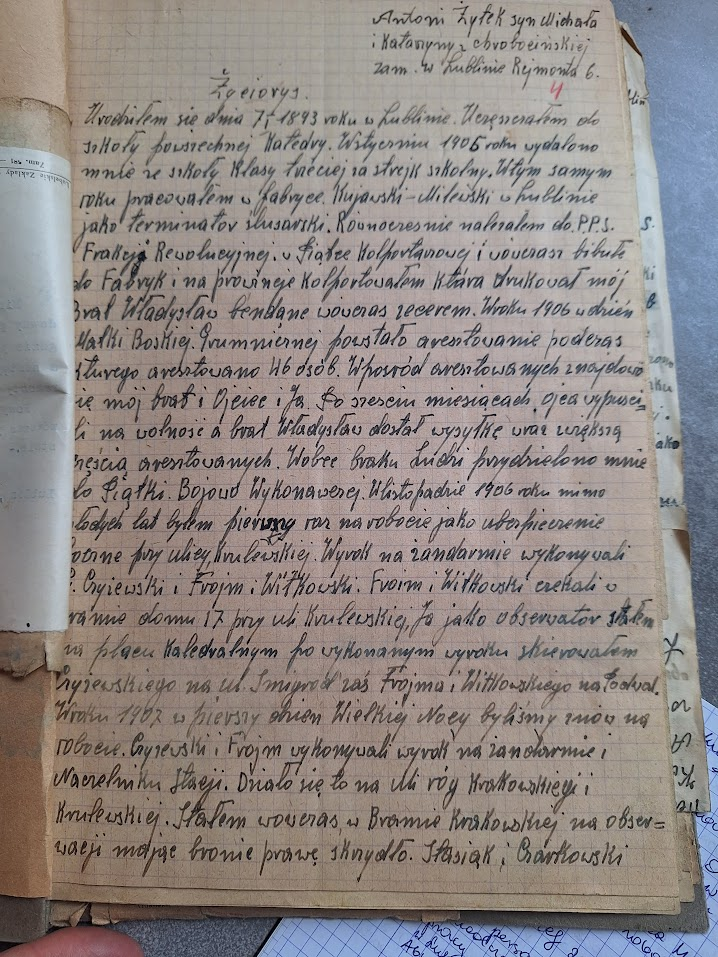 Antoni Żyłek syn Michała
i Katarzyny z chrobocińskiej
zam. w Lublinie Rejmonta 6.
4
Życiorys.
Urodziłem się dnia 7/I 1893 roku w Lublinie. Uczęszczałem do
szkoły powszechnej Katedry. Wstyczniu 1905 roku wydalono
mnie ze szkoły Klasy trzeciej za strejk szkolny. Wtym samym
roku pracowałem w fabryce, Kujawski-Milewski w Lublinie
jako terminator ślusarski. Równoczesnie należałem do P.P.S.
Frakcji Rewolucyjnej. w Piątce Kolportażowej i wówczas bibułe
do Fabryk i na prowincje Kolportowałem Która drukował mój
Brat Władysław bendąnc wówczas zecerem. Wroku 1906 w dzień
Matki Boskiej Grumniernej powstało aresztowanie podczas
którego aresztowano 46 osób. Wpośród aresztowanych znajdowa
mój brat i Ojciec i Ja. Po sześciu miesiącach, ojca wypuści-
li na wolność a brat Władysław dostał wysyłkę wraz większą
częścią aresztowanych. Wobec braku Ludzi przydzielono mnie
do Piątki. Bojowo Wykonawczej. Wlistopadzie 1906 roku mimo
młodych lat byłem pierwszy raz na robocie jako ubezpieczenie
przy ulicy, Krulewskiej. Wyrok na żandarmie wykonywali
Czyżewski i Frojm i Witkowski. Frojm i Witkowski czekali w
bramie domu 17 przy uli Krulewskiej, Ja jako obserwator stałem
na placu Katedralnym po wykonanym wyroku skierowałem
Czyżewskiego na ul. Żmigród zaś Frojma i Witkowskiego na Podwal.
Wroku 1907 w pierszy dzień Wielkiej Nocy byliśmy znów na
robocie. Czyżewski i Frojm wykonywali wyrok na żandarmie i
Naczelniku Stacji. Działo się to na uli róg Krakowskięgi i
Krulewskiej. Stałem wówczas, w Bramie Krakowskiej na obser=
wacji mając bronie prawę skrzydło. Stasiak i Czarkowski